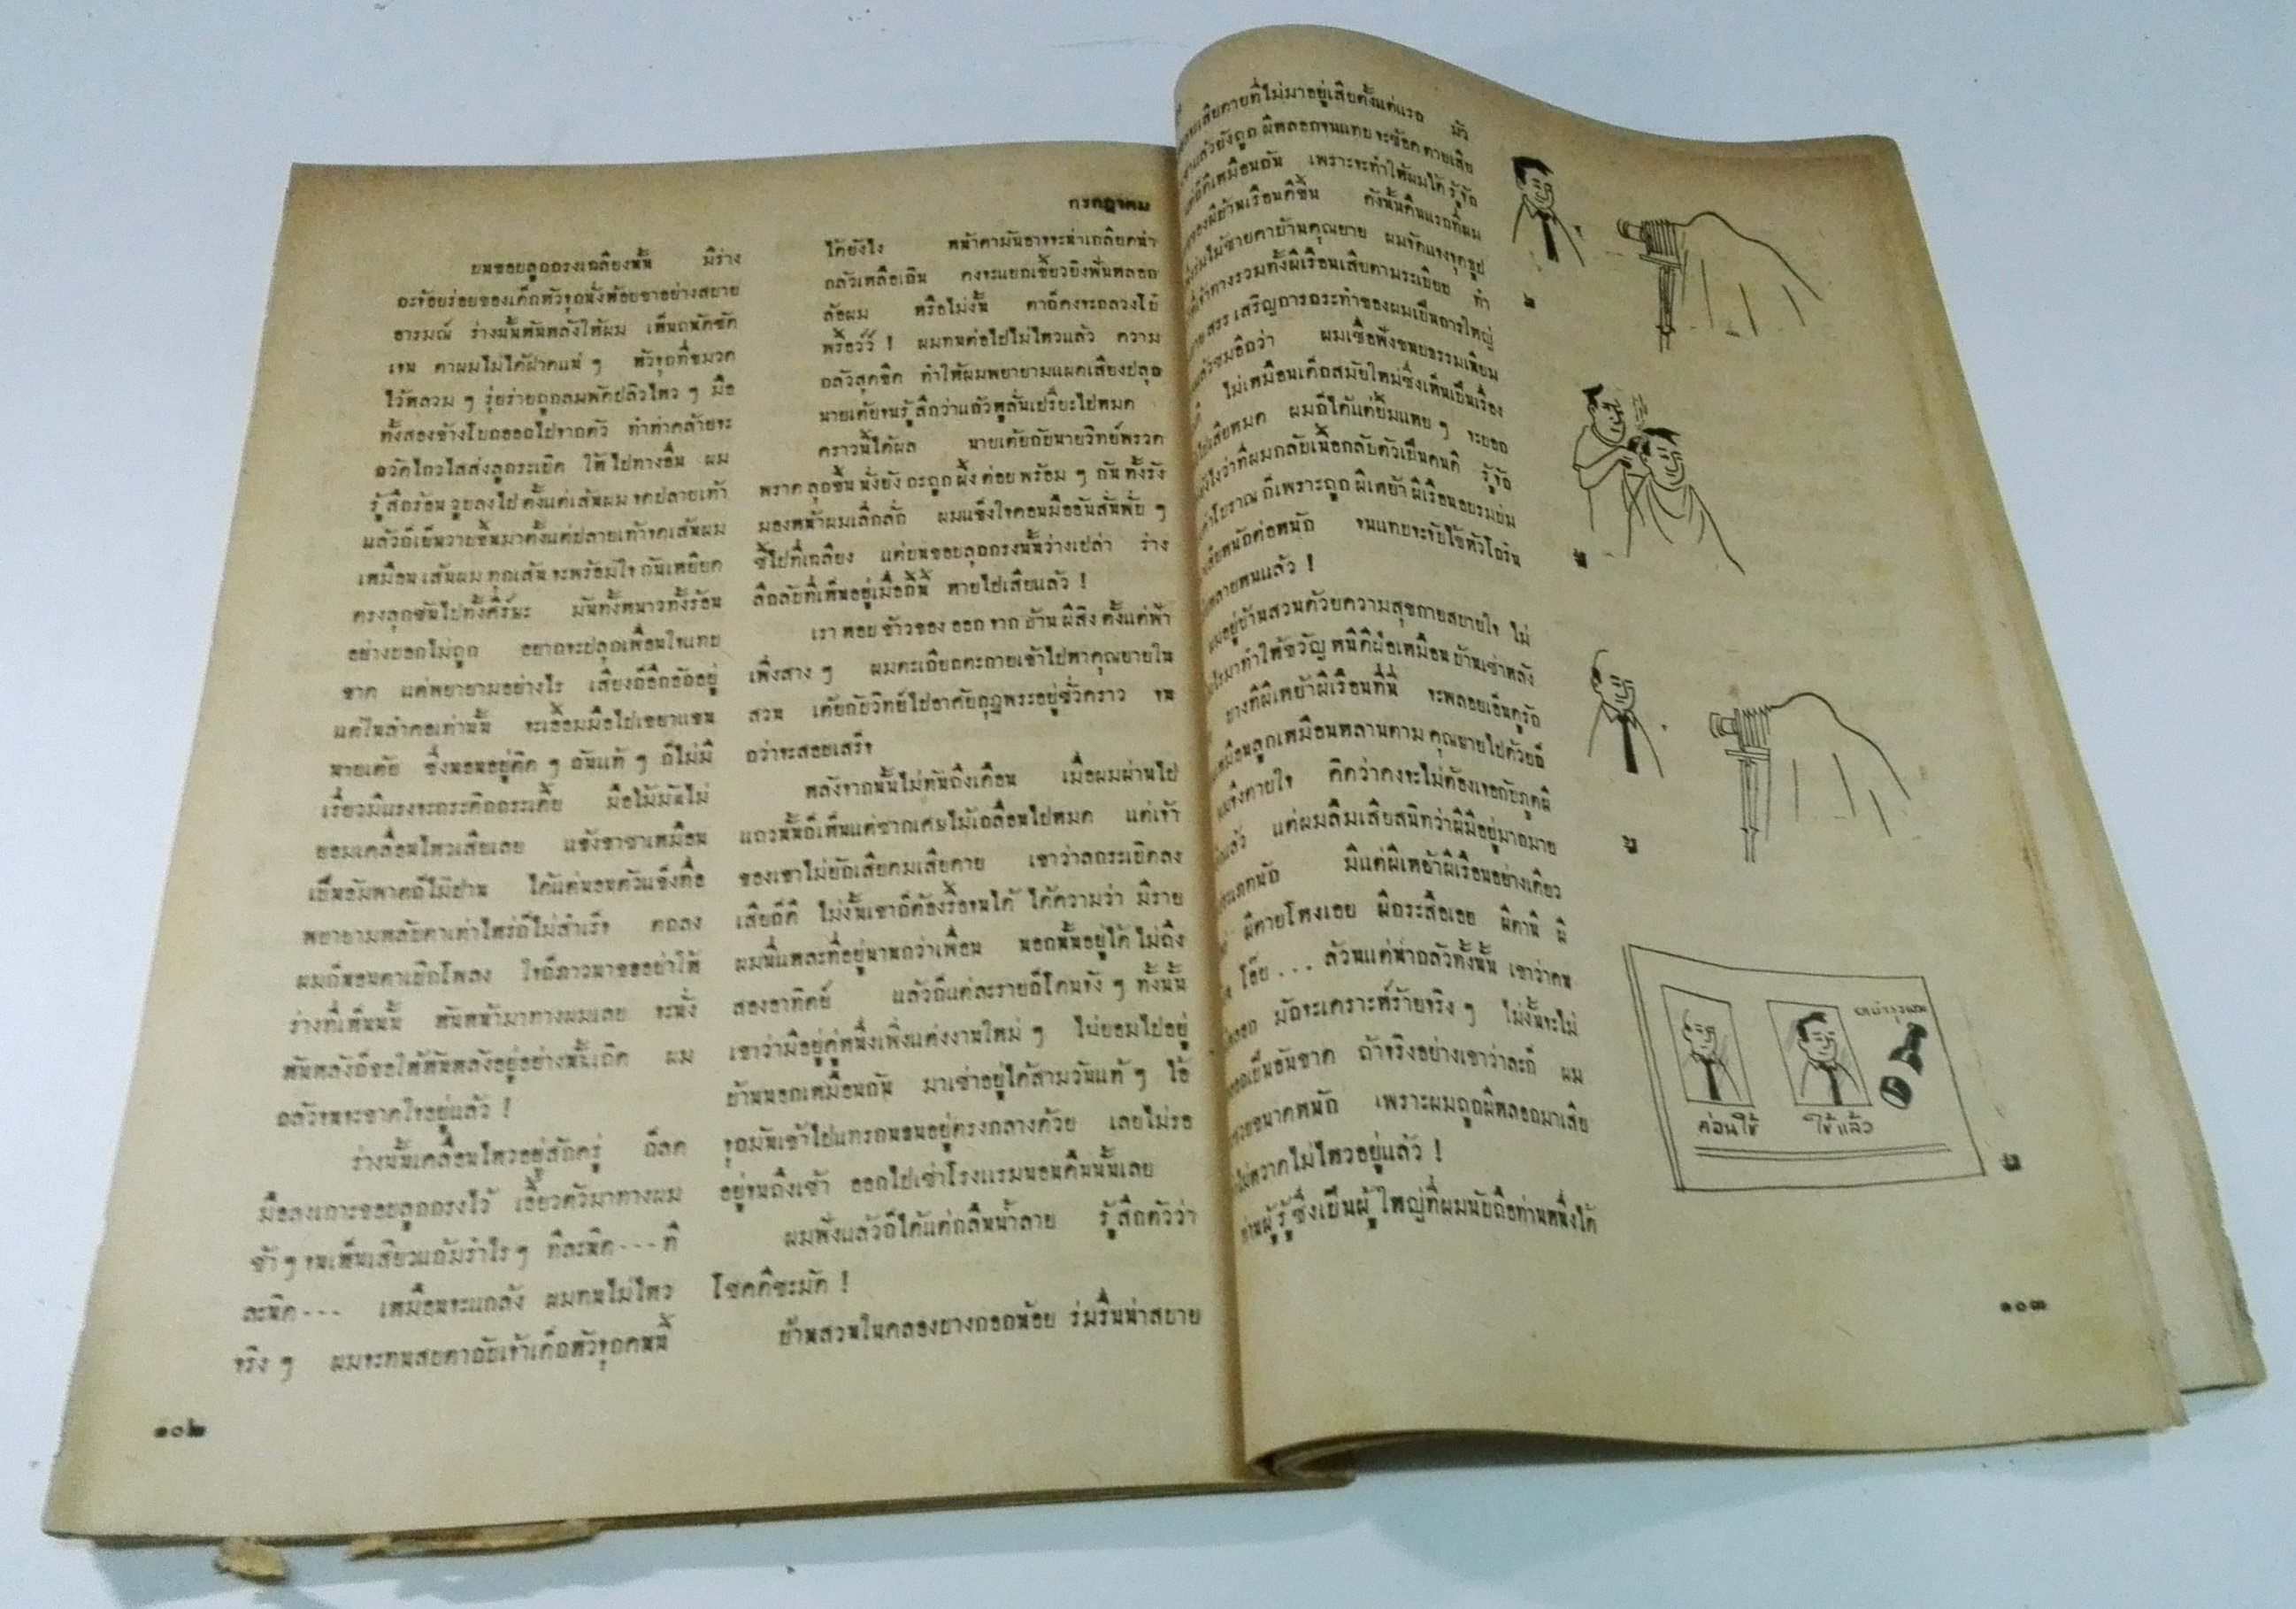 กรกฎาคม
บนขอบลูกกรงเฉลียงนั้น มีร่าง
กะจ้อยร่อยของเด็กหัวจุกนั่งห้อยขาอย่างสบาย
อารมณ์ ร่างนั้นหันหลังให้ผม เห็นถนัดชัด
เจน ตาผมไม่ได้ฝาดแน่ ๆ หัวจุกที่ขมวด
ไว้หลวม ๆ รุ่ยร่ายถูกลมพัดปลิวไหว ๆ มือ
ทั้งสองข้างโบกออกไปจากตัว ทำท่าคล้ายจะ
กวักไกวไสส่งลูกระเบิด ให้ไปทางอื่น ผม
รู้สึกร้อนวูบลงไปตั้งแต่เส้นผมจดปลายเท้า
แล้วก็เย็นวาบขึ้นมาตั้งแต่ปลายเท้าจดเส้นผม
เหมือนเส้นผมทุกเส้นจะพร้อมใจกันเหยียด
ตรงลุกชันไปทั้งศีร์ษะ มันทั้งหนาวทั้งร้อน
อย่างบอกไม่ถูก อยากจะปลุกเพื่อนใจแทบ
ขาด แต่พยายามอย่างไร เสียงก็อึกอักอยู่
แต่ในลำคอเท่านั้น จะเอื้อมมือไปเขย่าแขน
นายเต้ย ซึ่งนอนอยู่ติด ๆ กันแท้ ๆ ก็ไม่มี
เรี่ยวมีแรงจะกระดิกกระเดี้ย มือไม้มันไม่
ยอมเคลื่อนไหวเสียเลย แข้งขาชาเหมือน
เป็นอัมพาตก็ไม่ปาน ได้แต่นอนตัวแข็งทื่อ
พยายามหลับตาเท่าไหร่ก็ไม่สำเร็จ ตกลง
ผมก็นอนตาเบิกโพลง ใจก็ภาวนาขออย่าให้
ร่างที่เห็นนั้น หันหน้ามาทางผมเลย จะนั่ง
หันหลังก็ขอให้หันหลังอยู่อย่างนั้นเถิด ผม
กลัวจนจะขาดใจอยู่แล้ว !
ร่างนั้นเคลื่อนไหวอยู่สักครู่ ก็ลด
มือลงเกาะขอบลูกกรงไว้ เอี้ยวตัวมาทางผม
ช้า ๆ จนเห็นเสี้ยวแก้มรำไร ๆ ทีละนิด - - - ที
ละนิด - - - เหมือนจะแกล้ง ผมทนไม่ไหว
จริง ๆ ผมจะทนสบตากับเจ้าเด็กหัวจุกคนนี้
๑๐๒
ได้ยังไง หน้าตามันอาจจะน่าเกลียดน่า
กลัวเหลือเกิน คงจะแยกเขี้ยวยิงฟันหลอก
ล้อผม หรือไม่งั้น ตาก็คงจะกลวงโบ๋
พรื้อว์ว์ ! ผมทนต่อไปไม่ไหวแล้ว ความ
กลัวสุดขีด ทำให้ผมพยายามแผดเสียงปลุก
นายเต้ยจนรู้สึกว่าแก้วหูลั่นเปรี๊ยะไปหมด
คราวนี้ได้ผล นายเต้ยกับนายวิทย์พรวด
พราดลุกขึ้นนั่งยังกะถูกผึ้งต่อยพร้อม ๆ กัน ทั้งรัง
มองหน้าผมเลิกลั่ก ผมแข็งใจถอนมืออันสั่นพั่บ ๆ
ชี้ไปที่เฉลียง แต่บนขอบลูกกรงนั้นว่างเปล่า ร่าง
ลึกลับที่เห็นอยู่เมื่อกี้นี้ หายไปเสียแล้ว !
เราหอบข้าวของออกจากบ้านผีสิงตั้งแต่ฟ้า
เพิ่งสาง ๆ ผมตะเกียกตะกายเข้าไปหาคุณยายใน
สวน เต้ยกับวิทย์ไปอาศัยกุฏิพระอยู่ชั่วคราว จน
กว่าจะสอบเสร็จ
หลังจากนั้นไม่ทันถึงเดือน เมื่อผมผ่านไป
แถวนั้นก็เห็นแต่ซากเศษไม้เกลื่อนไปหมด แต่เจ้า
ของเขาไม่ยักเสียดมเสียดาย เขาว่าลูกระเบิดลง
เสียก็ดี ไม่งั้นเขาก็ต้องรื้อจนได้ ได้ความว่า มีราย
ผมนี่แหละที่อยู่นานกว่าเพื่อน นอกนั้นอยู่ได้ไม่ถึง
สองอาทิตย์ แล้วก็แต่ละรายก็โดนจัง ๆ ทั้งนั้น
เขาว่ามีอยู่คู่หนึ่งเพิ่งแต่งงานใหม่ ๆ ไม่ยอมไปอยู่
บ้านนอกเหมือนกัน มาเช่าอยู่ได้สามวันแท้ ๆ ไอ้
จุกมันเข้าไปแทรกนอนอยู่ตรงกลางด้วย เลยไม่รอ
อยู่จนถึงเช้า ออกไปเช่าโรงแรมนอนคืนนั้นเลย
ผมฟังแล้วก็ได้แต่กลืนน้ำลาย รู้สึกตัวว่า
โชคดีชะมัด !
บ้านสวนในคลองบางกอกน้อย ร่มรื่นน่าสบาย
เสียดายที่ไม่มาอยู่เสียตั้งแต่แรก มัว
แล้วยังถูกผีหลอกจนแทบจะช๊อคตายเสีย
ก็ดีเหมือนกัน เพราะจะทำให้ผมได้รู้จัก
ของผีบ้านเรือนดีขึ้น ดังนั้นคืนแรกที่ผม
ร่มไม้ชายคาบ้านคุณยาย ผมจัดแจงจุดธูป
เจ้าทางรวมทั้งผีเรือนเสียตามระเบียบ ทำ
สรรเสริญการกระทำของผมเป็นการใหญ่
แล้วชมอีกว่า ผมเชื่อฟังขนบธรรมเนียม
ไม่เหมือนเด็กสมัยใหม่ซึ่งเห็นเป็นเรื่อง
ไปเสียหมด ผมก็ได้แต่ยิ้มแหย ๆ จะบอก
ยังไงว่าที่ผมกลับเนื้อกลับตัวเป็นคนดี รู้จัก
โบราณ ก็เพราะถูกผีเหย้าผีเรือนอบรมบ่ม
เสียหนักต่อหนัก จนแทบจะจับไข้หัวโกร๋น
หลายหนแล้ว !
ผมอยู่บ้านสวนด้วยความสุขกายสบายใจ ไม่
มาทำให้ขวัญหนีดีฝ่อเหมือนบ้านเช่าหลัง
บางทีผีเหย้าผีเรือนที่นี่ จะพลอยเอ็นดูรัก
เหมือนลูกเหมือนหลานตามคุณยายไปด้วยก็
ผมจึงตายใจ คิดว่าคงจะไม่ต้องเจอกับภูตผี
แล้ว แต่ผมลืมเสียสนิทว่าผีมีอยู่มากมาย
มีแต่ผีเหย้าผีเรือนอย่างเดียว
ผีตายโหงเอย ผีกระสือเอย ผีตานี ผี
โอ๊ย . . . ล้วนแต่น่ากลัวทั้งนั้น เขาว่าคน
มักจะเคราะห์ร้ายจริง ๆ ไม่งั้นจะไม่
เป็นอันขาด ถ้าจริงอย่างเขาว่าละก็ ผม
ขนาดหนัก เพราะผมถูกผีหลอกมาเสีย
ไม่หวาดไม่ไหวอยู่แล้ว !
ท่านผู้รู้ซึ่งเป็นผู้ใหญ่ที่ผมนับถือท่านหนึ่งได้
ยาบำรุงผม
ก่อนใช้ ใช้แล้ว
๑๐๓